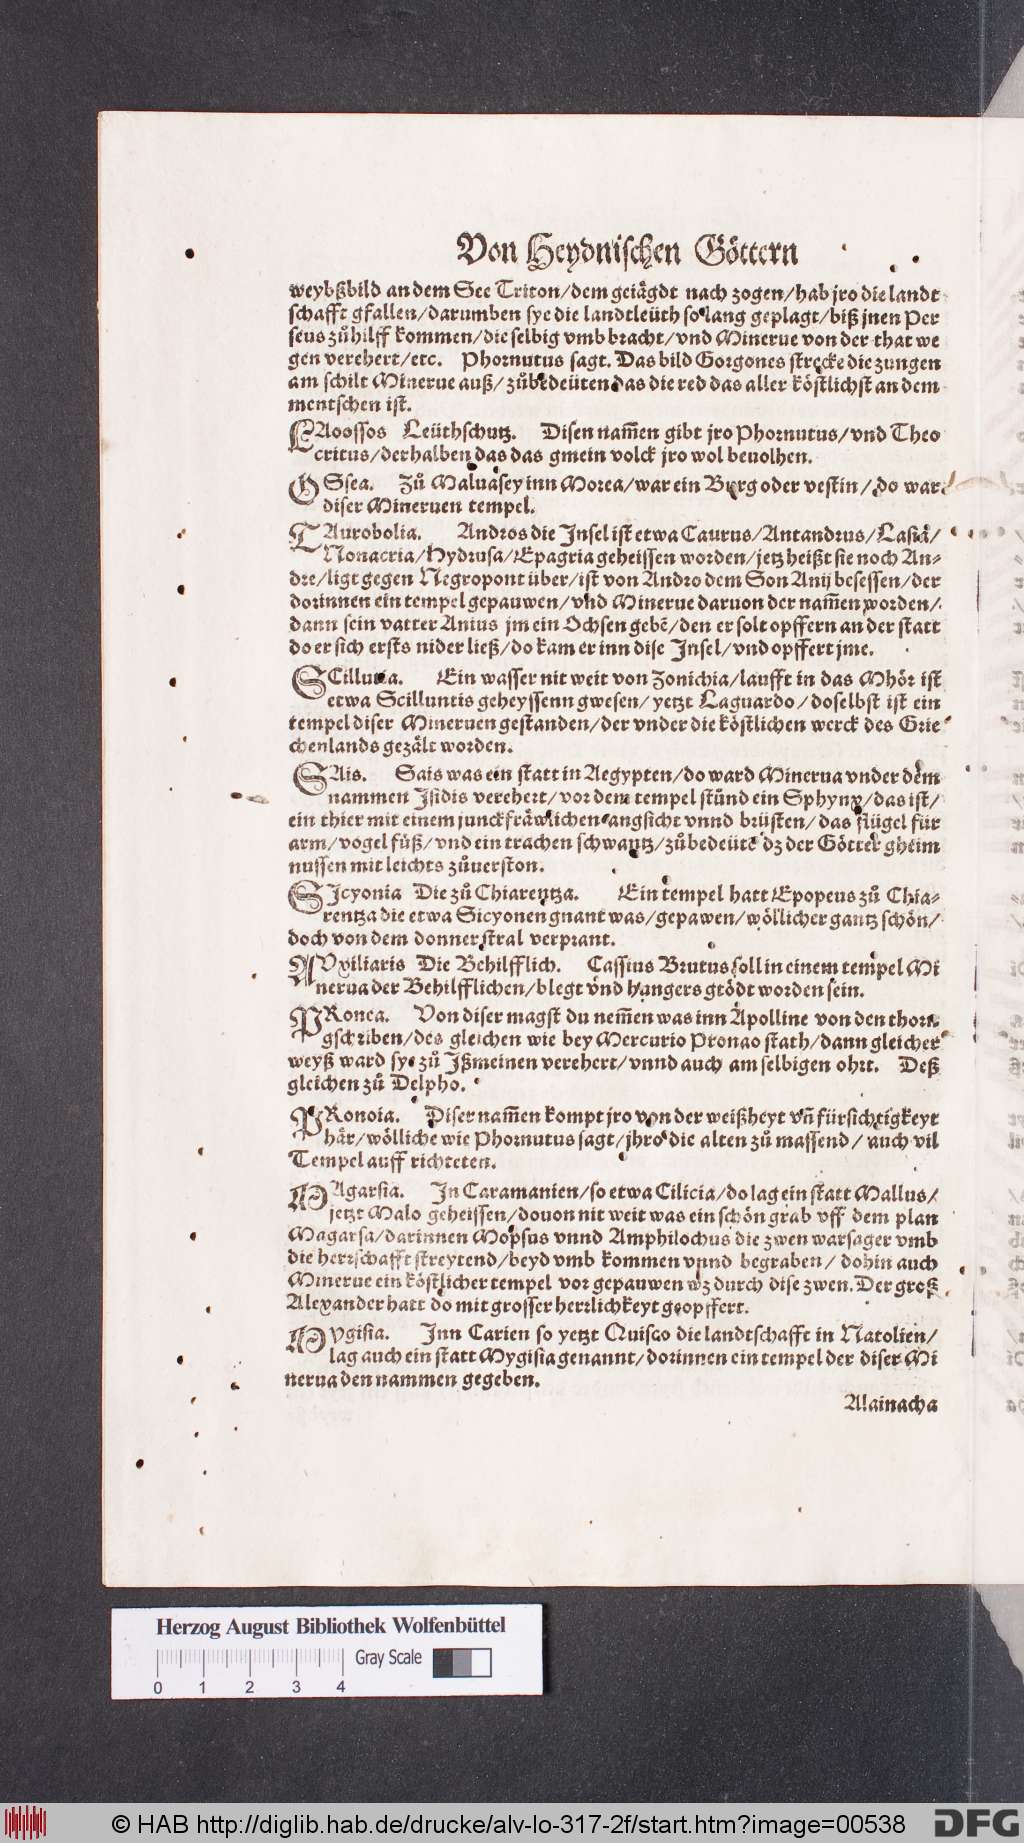 Von Heydnischen Göttern
weybßbild an dem See Triton/dem geiägdt nach zogen/hab jro die landt
schafft gfallen/darumben sye die landtleüth so lang geplagt/biß jnen Per
seus zůhilff kommen/die selbig vmb bracht/vnd Minerue von der that we
gen verehert/etc. Phornutus sagt. Das bild Gorgones strecke die zungen
am schilt Minerue auß/zůbedeüten das die red das aller köstlichst an dem
mentschen ist.
LAoossos Leüthschutz. Disen nam̄en gibt jro Phornutus/vnd Theo
critus/derhalben das das gmein volck jro wol beuolhen.
OSsea. Zů Maluasey inn Morea/war ein Burg oder vestin/do war
diser Mineruen tempel.
TAurobolia. Andros die Insel ist etwa Caurus/Antandrus/Lasia/
Nonacria/Hydrusa/Epagria geheissen worden/jetz heißt sie noch An-
dre/ligt gegen Negropont über/ist von Andro dem Son Anij besessen/der
dorinnen ein tempel gepauwen/vnd Minerue daruon der nam̄en worden/
dann sein vatter Anius jm ein Ochsen gebē/den er solt opffern an der statt
do er sich ersts nider ließ/do kam er inn dise Insel/vnd opffert jme.
SCilluntia. Ein wasser nit weit von Zonichia/laufft in das Mhör ist
etwa Scilluntis geheyssenn gwesen/yetzt Laguardo/doselbst ist ein
tempel diser Mineruen gestanden/der vnder die köstlichen werck des Grie
chenlands gezält worden.
SAis. Sais was ein statt in Aegypten/do ward Minerua vnder dem
nammen Isidis verehert/vor dem tempel stůnd ein Sphynx/das ist/
ein thier mit einem junckfräwlichen angsicht vnnd brüsten/das flügel für
arm/vogel füß/vnd ein trachen schwantz/zůbedeütē dz der Götter gheim
nussen mit leichts zůuerston.
SIcyonia Die zů Chiarentza. Ein tempel hatt Epopeus zů Chia-
rentza die etwa Sicyonen gnant was/gepawen/wöllicher gantz schön/
doch von dem donnerstral verprant.
AVxiliaris Die Behilfflich. Cassius Brutus soll in einem tempel Mi
nerua der Behilfflichen/blegt vnd hungers gtödt worden sein.
PRonea. Von diser magst du nem̄en was inn Apolline von den thorn
gschriben/des gleichen wie bey Mercurio Pronao stath/dann gleicher
weyß ward sye zů Ißmeinen verehert/vnnd auch am selbigen ohrt. Deß
gleichen zů Delpho.
PRonoia. Diser nam̄en kompt jro von der weißheyt vn̄ fürsichtigkeyt
här/wölliche wie Phornutus sagt/jhro die alten zů massend/auch vil
Tempel auff richteten.
MAgarsia. In Caramanien/so etwa Cilicia/do lag ein statt Mallus/
jetzt Malo geheissen/douon nit weit was ein schön grab vff dem plan
Magarsa/darinnen Mopsus vnnd Amphilochus die zwen warsager vmb
die herrschafft streytend/beyd vmb kommen vnnd begraben/dohin auch
Minerue ein köstlicher tempel vor gepauwen wz durch dise zwen. Der groß
Alexander hatt do mit grosser herrlichkeyt geopffert.
MYgisia. Inn Carien so yetzt Quisco die landtschafft in Natolien/
lag auch ein statt Mygisia genannt/dorinnen ein tempel der diser Mi
nerua den nammen gegeben.
Alainacha
Herzog August Bibliothek Wolfenbüttel
Gray Scale
0 1 2 3 4
© HAB http://diglib.hab.de/drucke/alv-lo-317-2f/start.htm?image=00538
DFG